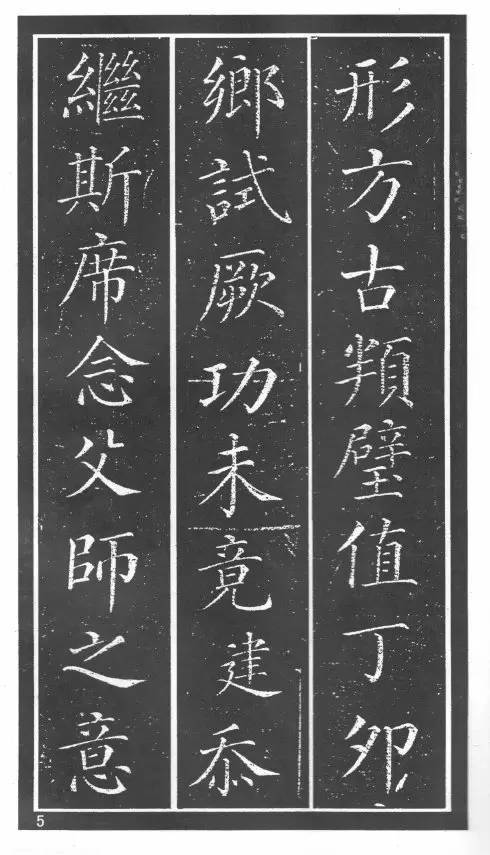 形方古頖璧值丁夘
鄉試厥功未竟建忝
繼斯席念父師之意
5